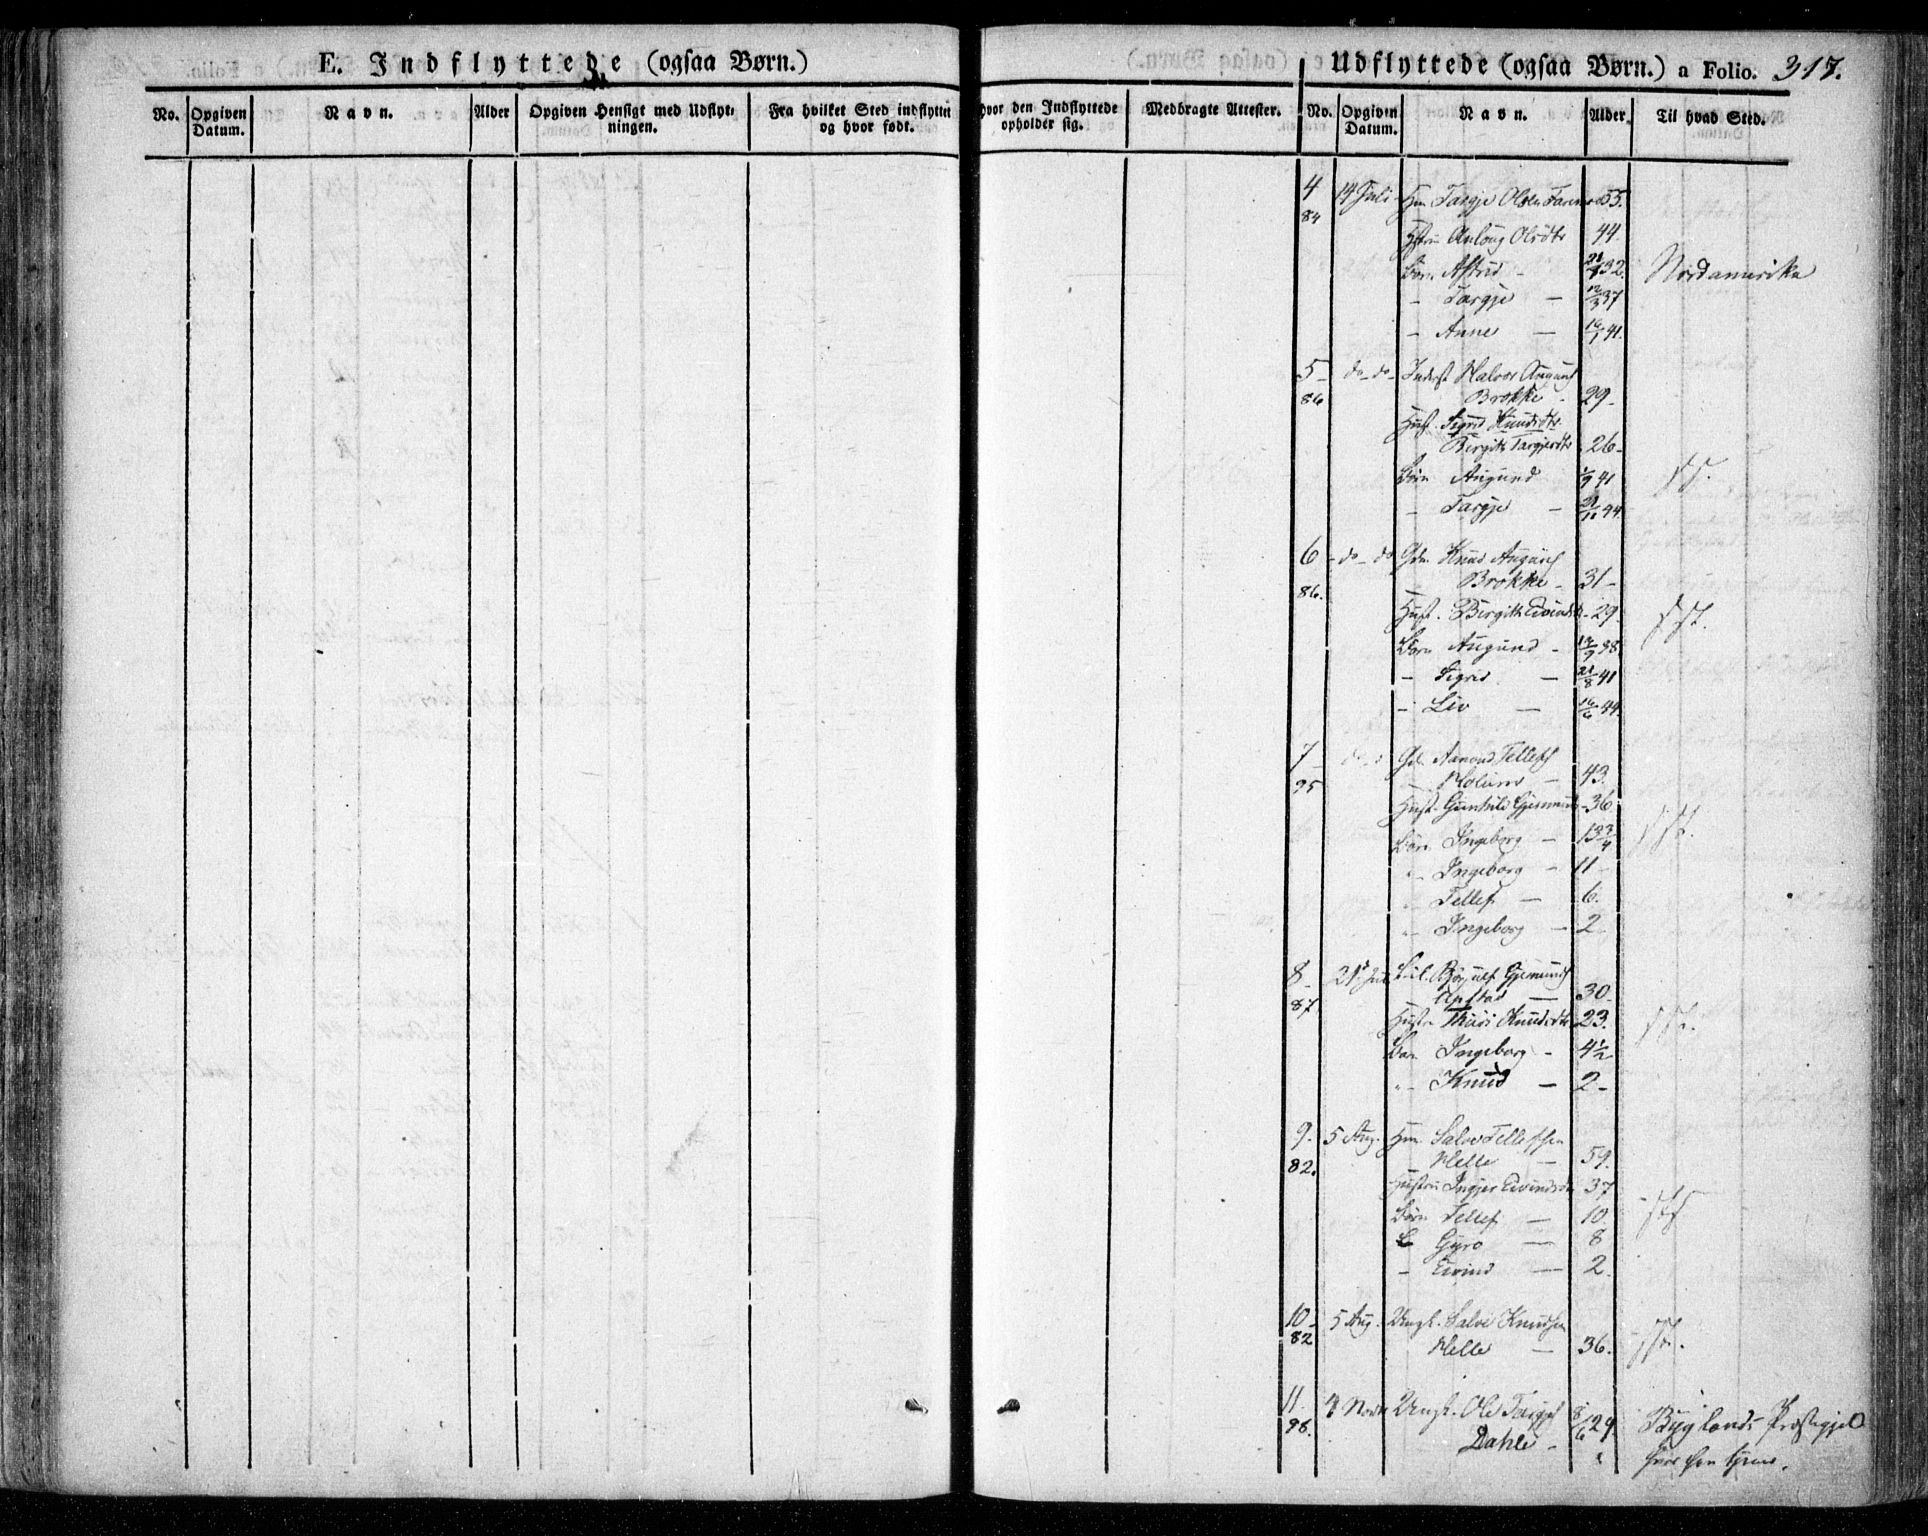 E. Indflyttede (ogsaa Børn.)
No. Opgiven Datum. Navn. Alder Opgiven Hensigt med Udflytningen. Fra hvilket Sted indflyttet og hvor født.
hvor den Indflyttede opholder sig. Medbragte Attester.
Udflyttede (ogsaa Børn.) a Folio. 317.
No. Opgiven Datum. Navn. Alder. Til hvad Sted.
4 14 Juli Hm Targje Olsen 55.
84
Hustru Anlaug Olsdtr 44.
Børn Astrid - 32. Nordamerika
" Targje - 37
- Anne - 41.
5 - do - do - Inderst Halvor Augunds
86 Brokke - 29 -
Hust. Sigrid Knudsdtr
Birgith Targjersdtr 26 -
Børn Augund 41
" Targje - 44.
6 - do - do Gdm. Knud Augunds
86. Brokke - 31 -
Hust. Birgith Eivindsdtr - 29 -
Børn Augund - 13/9 38
- Sigrid - 21/8 41
- Liv - 16/6 44.
7 Gd. Aanund Tellefs
95 - 43.
Hust. Gunhild Gjermunds - 36
Børn Ingeborg - 13 3/4
" Ingeborg - 11 -
" Tellef - 6.
" Ingeborg - 2
8 - 21 Juli Bjørgulf Gjermunds
87. - 30 -
Hustr Knudsdtr 23.
Børn Ingeborg - 4 1/2
" Knud - 2 -
9. 5 Aug. Hm. Salve Tellefssen
82. Helle - 59.
Hustru Ingjer Eivindsdtr 37
Børn Tellef - 10.
Gyro - 8
- Eivind - 2.
10 - 5 Aug. Ungk. Salve Knudsen
82 Helle - 36.
11. 4 Novbr Ungk. Ole Targjes 8/6 29. Byglands Præstegjeld
98. Dahle -